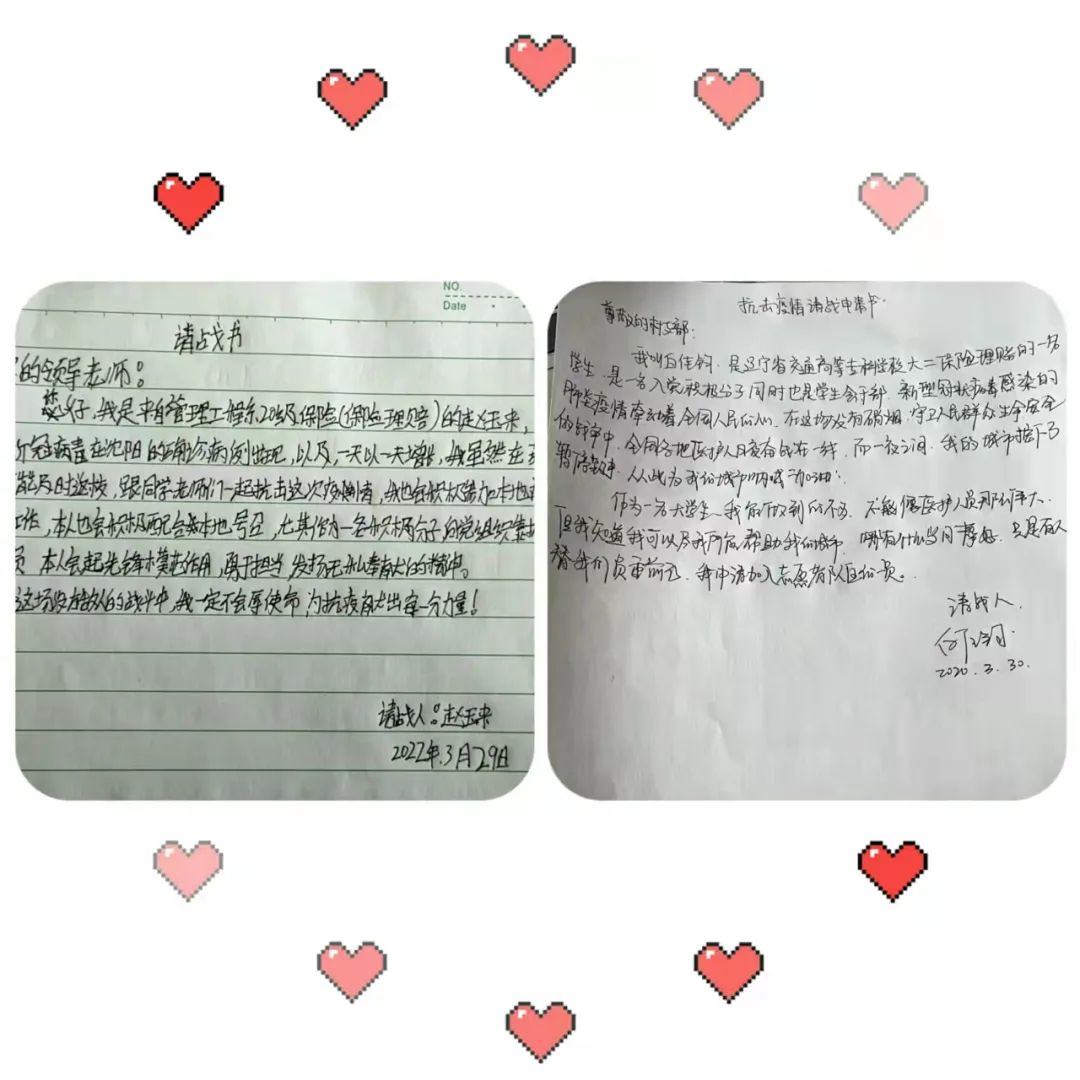 NO.
Date
请战书
的领导老师：
您好，我是来自管理工程系20级保险（保险理赔）的赵玉来，
冠病毒在沈阳的确诊病例出现，以及一天以一天增长，我虽然在
及时返校，跟同学老师们一起抗击这次疫情，我也会积极参加本地
工作，本人也会积极配合基本地号召，尤其作为一名积极分子向党组织靠
员 本人会起先锋模范作用，勇于担当，发扬无私奉献的精神。
这场没有敌人的战斗中，我一定不会辱使命 为抗疫献出军一分力量！
请战人：赵玉来
2022年3月29日
抗击疫情请战申请书
尊敬的村支部：
我叫 是辽宁省交通高等专科学校大二保险理赔的一名
学生，是一名入党积极分子同时也是学生会干部，新型冠状病毒感染的
肺炎疫情牵动着全国人民的心，在这场没有硝烟，守卫人民群众生命安全
的战争中，全国各地医护人员夜奋战在一线，而一夜之间，我的城市按下了
暂停键，从此为我的城市呐喊加油。
作为一名大学生，我能做到的不多，不能像医护人员那样伟大，
但我知道我可以尽我所能帮助我们城市，哪有什么岁月静好，只是有人
替我们负重前行，我申请加入志愿者队伍的一员。
请战人.
2020.3.30.